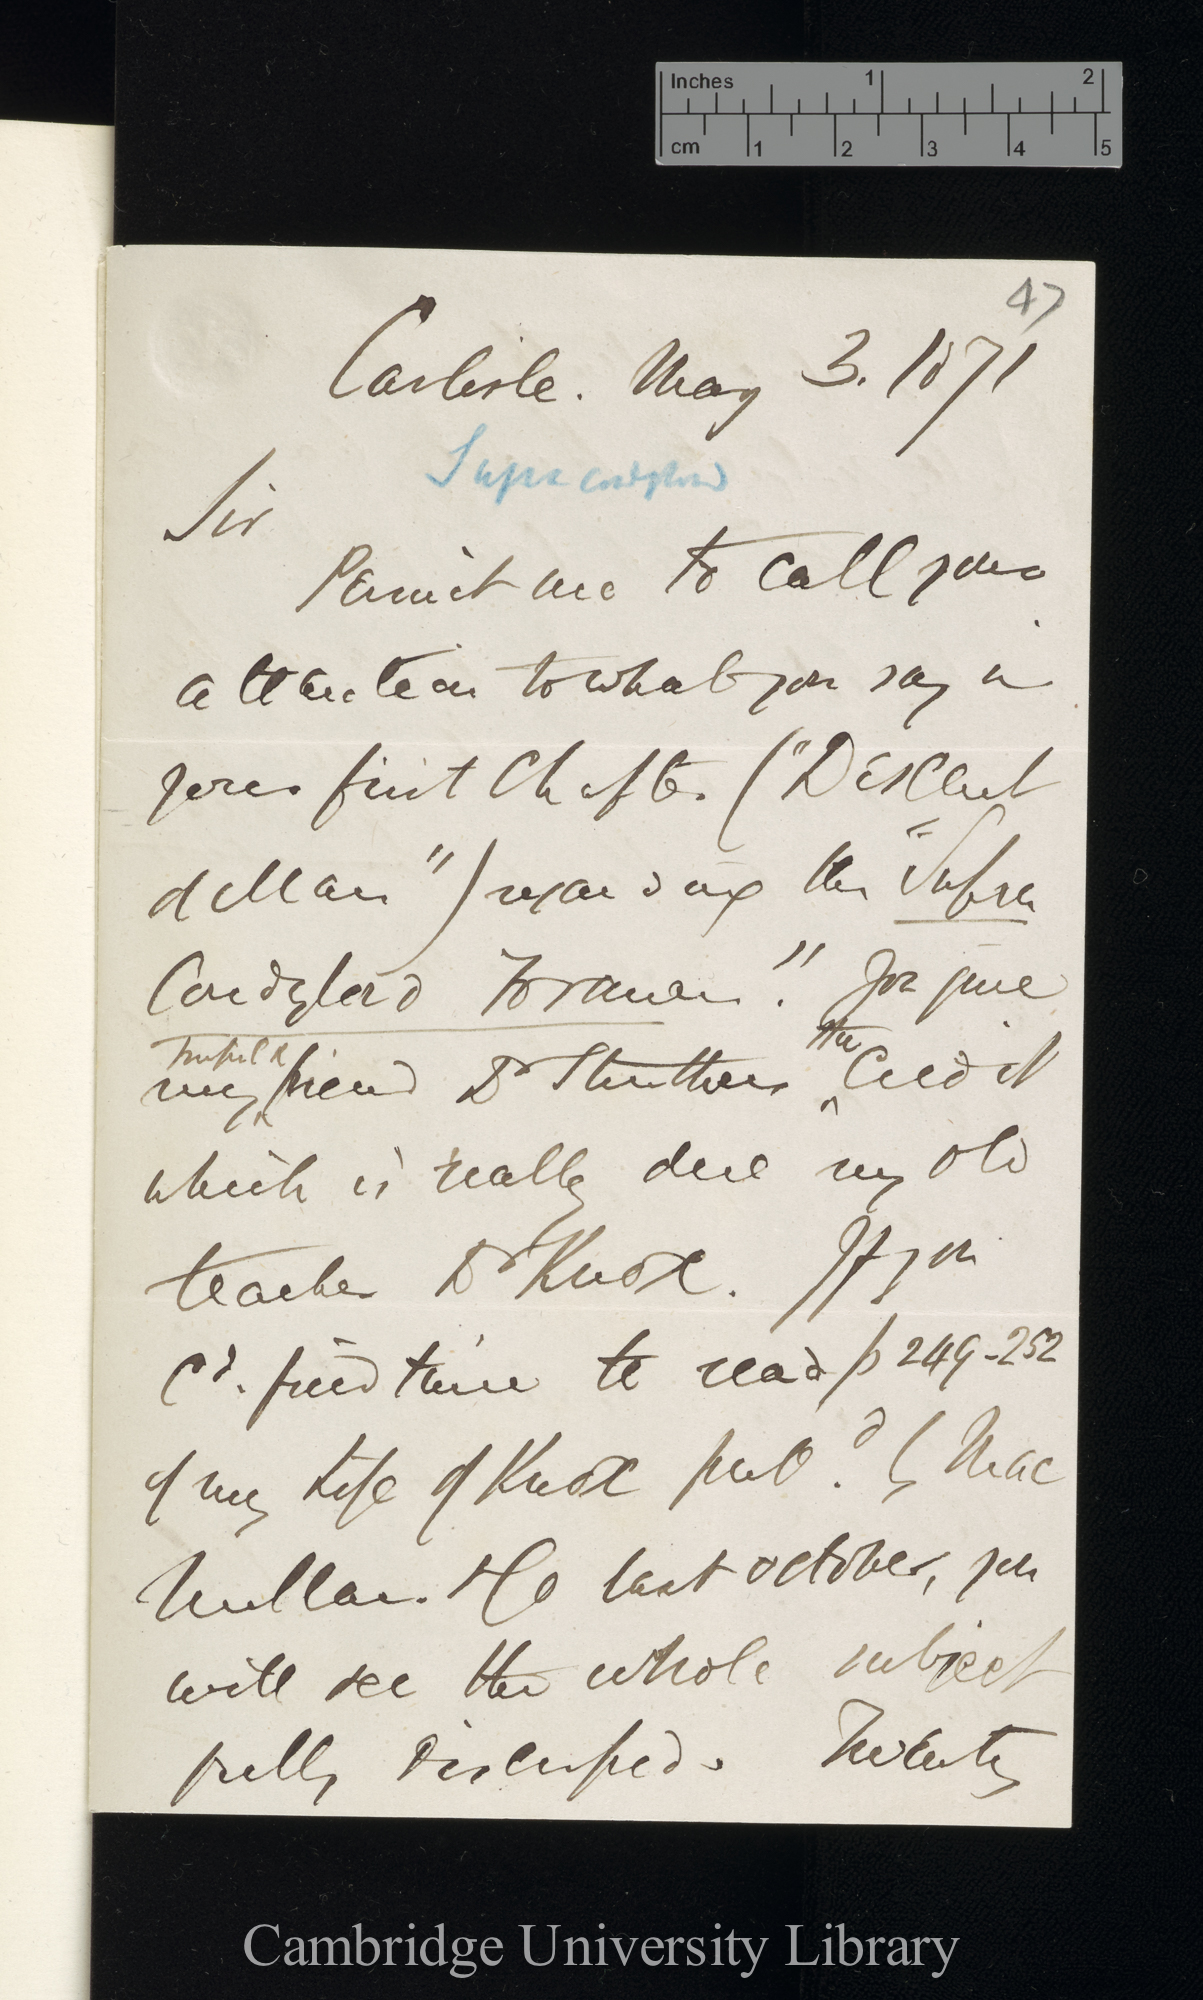 Inches 1 2
cm 1 2 3 4 5
47
Carlisle. May 3. 1871
Supra condyloid
Sir
Permit me to call your
attention to what you say in
your first Chapter ("Descent
of Man") regarding the "Supra
Condyloid Foramen." You give
my friend Dr Struthers the Credit
which is really due my old
teacher Dr Knox. If you
cd. find time to read p 249-252
of my Life of Knox pubd. by Mac
Millan. & Co last October, you
will see the whole subject
fully discussed. Twenty
Cambridge University Library